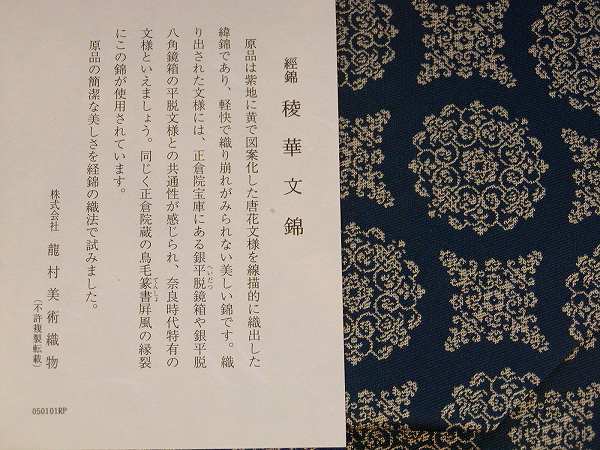 經錦 稜華文錦
原品は紫地に黄で図案化した唐花文様を線描的に織出した
緯錦であり、軽快で織り崩れがみられない美しい錦です。織
り出された文様には、正倉院宝庫にある銀平脱鏡箱や銀平脱
へいだつ
八角鏡箱の平脱文様との共通性が感じられ、奈良時代特有の
文様といえましょう。同じく正倉院蔵の鳥毛篆書屛風の縁裂
てんしょ
にこの錦が使用されています。
原品の簡潔な美しさを経錦の織法で試みました。
株式会社 龍村美術織物
(不許複製転載)
050101RP